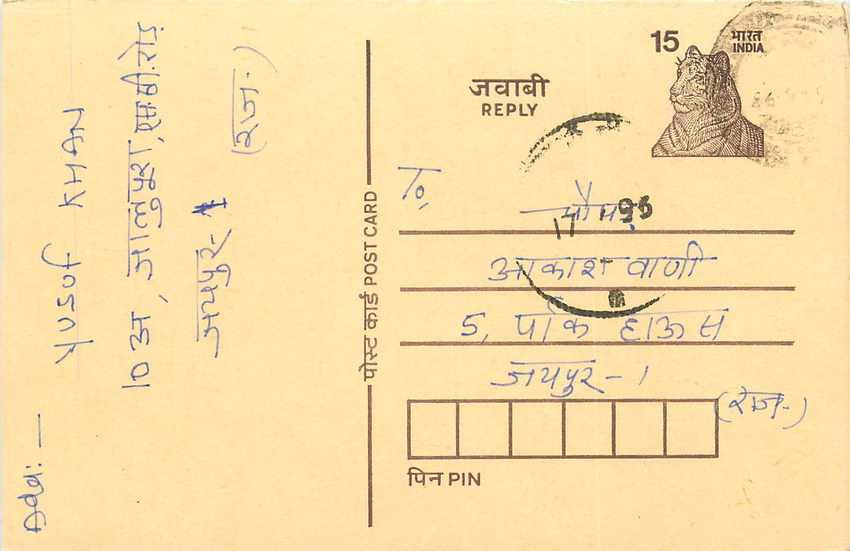 15
भारत
INDIA
जवाबी
REPLY
To,
आकाशवाणी
5, पार्क हाऊस
जयपुर-1
(राज.)
पिन PIN
पोस्ट कार्ड POST CARD
Add:-
YUSUF KHAN
10 अ, जालुपुरा, एस.बी.रोड़
जयपुर-1
(राज.)